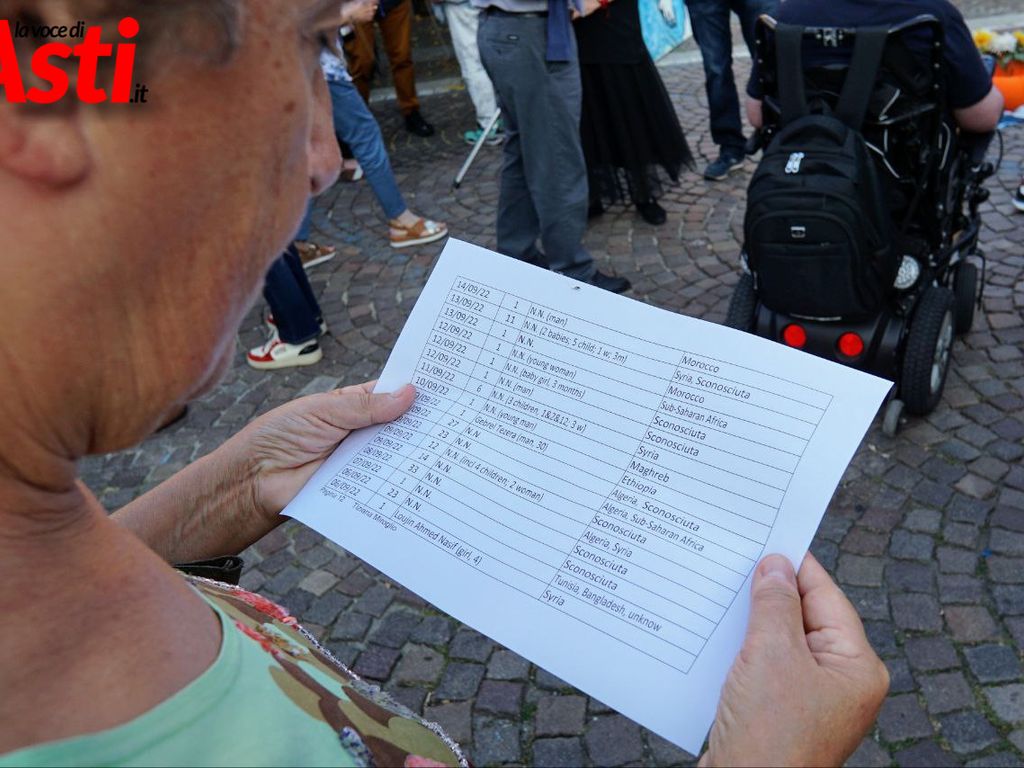 la voce di
Asti
.it
14/09/22 1 N.N. (man) Morocco
13/09/22 11 N.N. (2 babies; 5 child; 1 w; 3m) Syria, Sconosciuta
13/09/22 1 N.N. Morocco
12/09/22 1 N.N. (young woman) Sub-Saharan Africa
12/09/22 1 N.N. (baby girl, 3 months) Sconosciuta
12/09/22 1 N.N. (man) Sconosciuta
11/09/22 6 N.N. (3 children, 1&2&12; 3 w) Syria
10/09/22 1 N.N. (young man) Maghreb
1 Gebrel Tezera (man, 30) Ethiopia
27 N.N. Algeria, Sconosciuta
23 N.N. Algeria, Sub-Saharan Africa
12 N.N. (incl 4 children; 2 woman) Sconosciuta
14 N.N. Algeria, Syria
33 N.N. Sconosciuta
07/09/22 1 N.N. Sconosciuta
06/09/22 23 N.N. Tunisia, Bangladesh, unknow
06/09/22 1 Loujin Ahmed Nasif (girl, 4) Syria
Pagina 12
Tiziana Miroglio